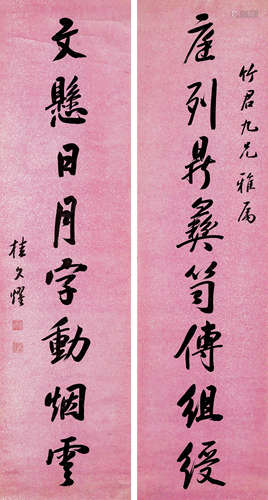 竹君九兄雅属
庭列鼎彝笥傳組綬
文懸日月字動烟雲
桂文燿